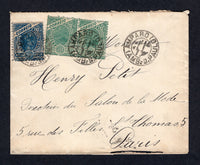 AMPARO
Henry Petit
Directeur du Salon de la Mode
5 rue des Filles St Thomas 5
Paris